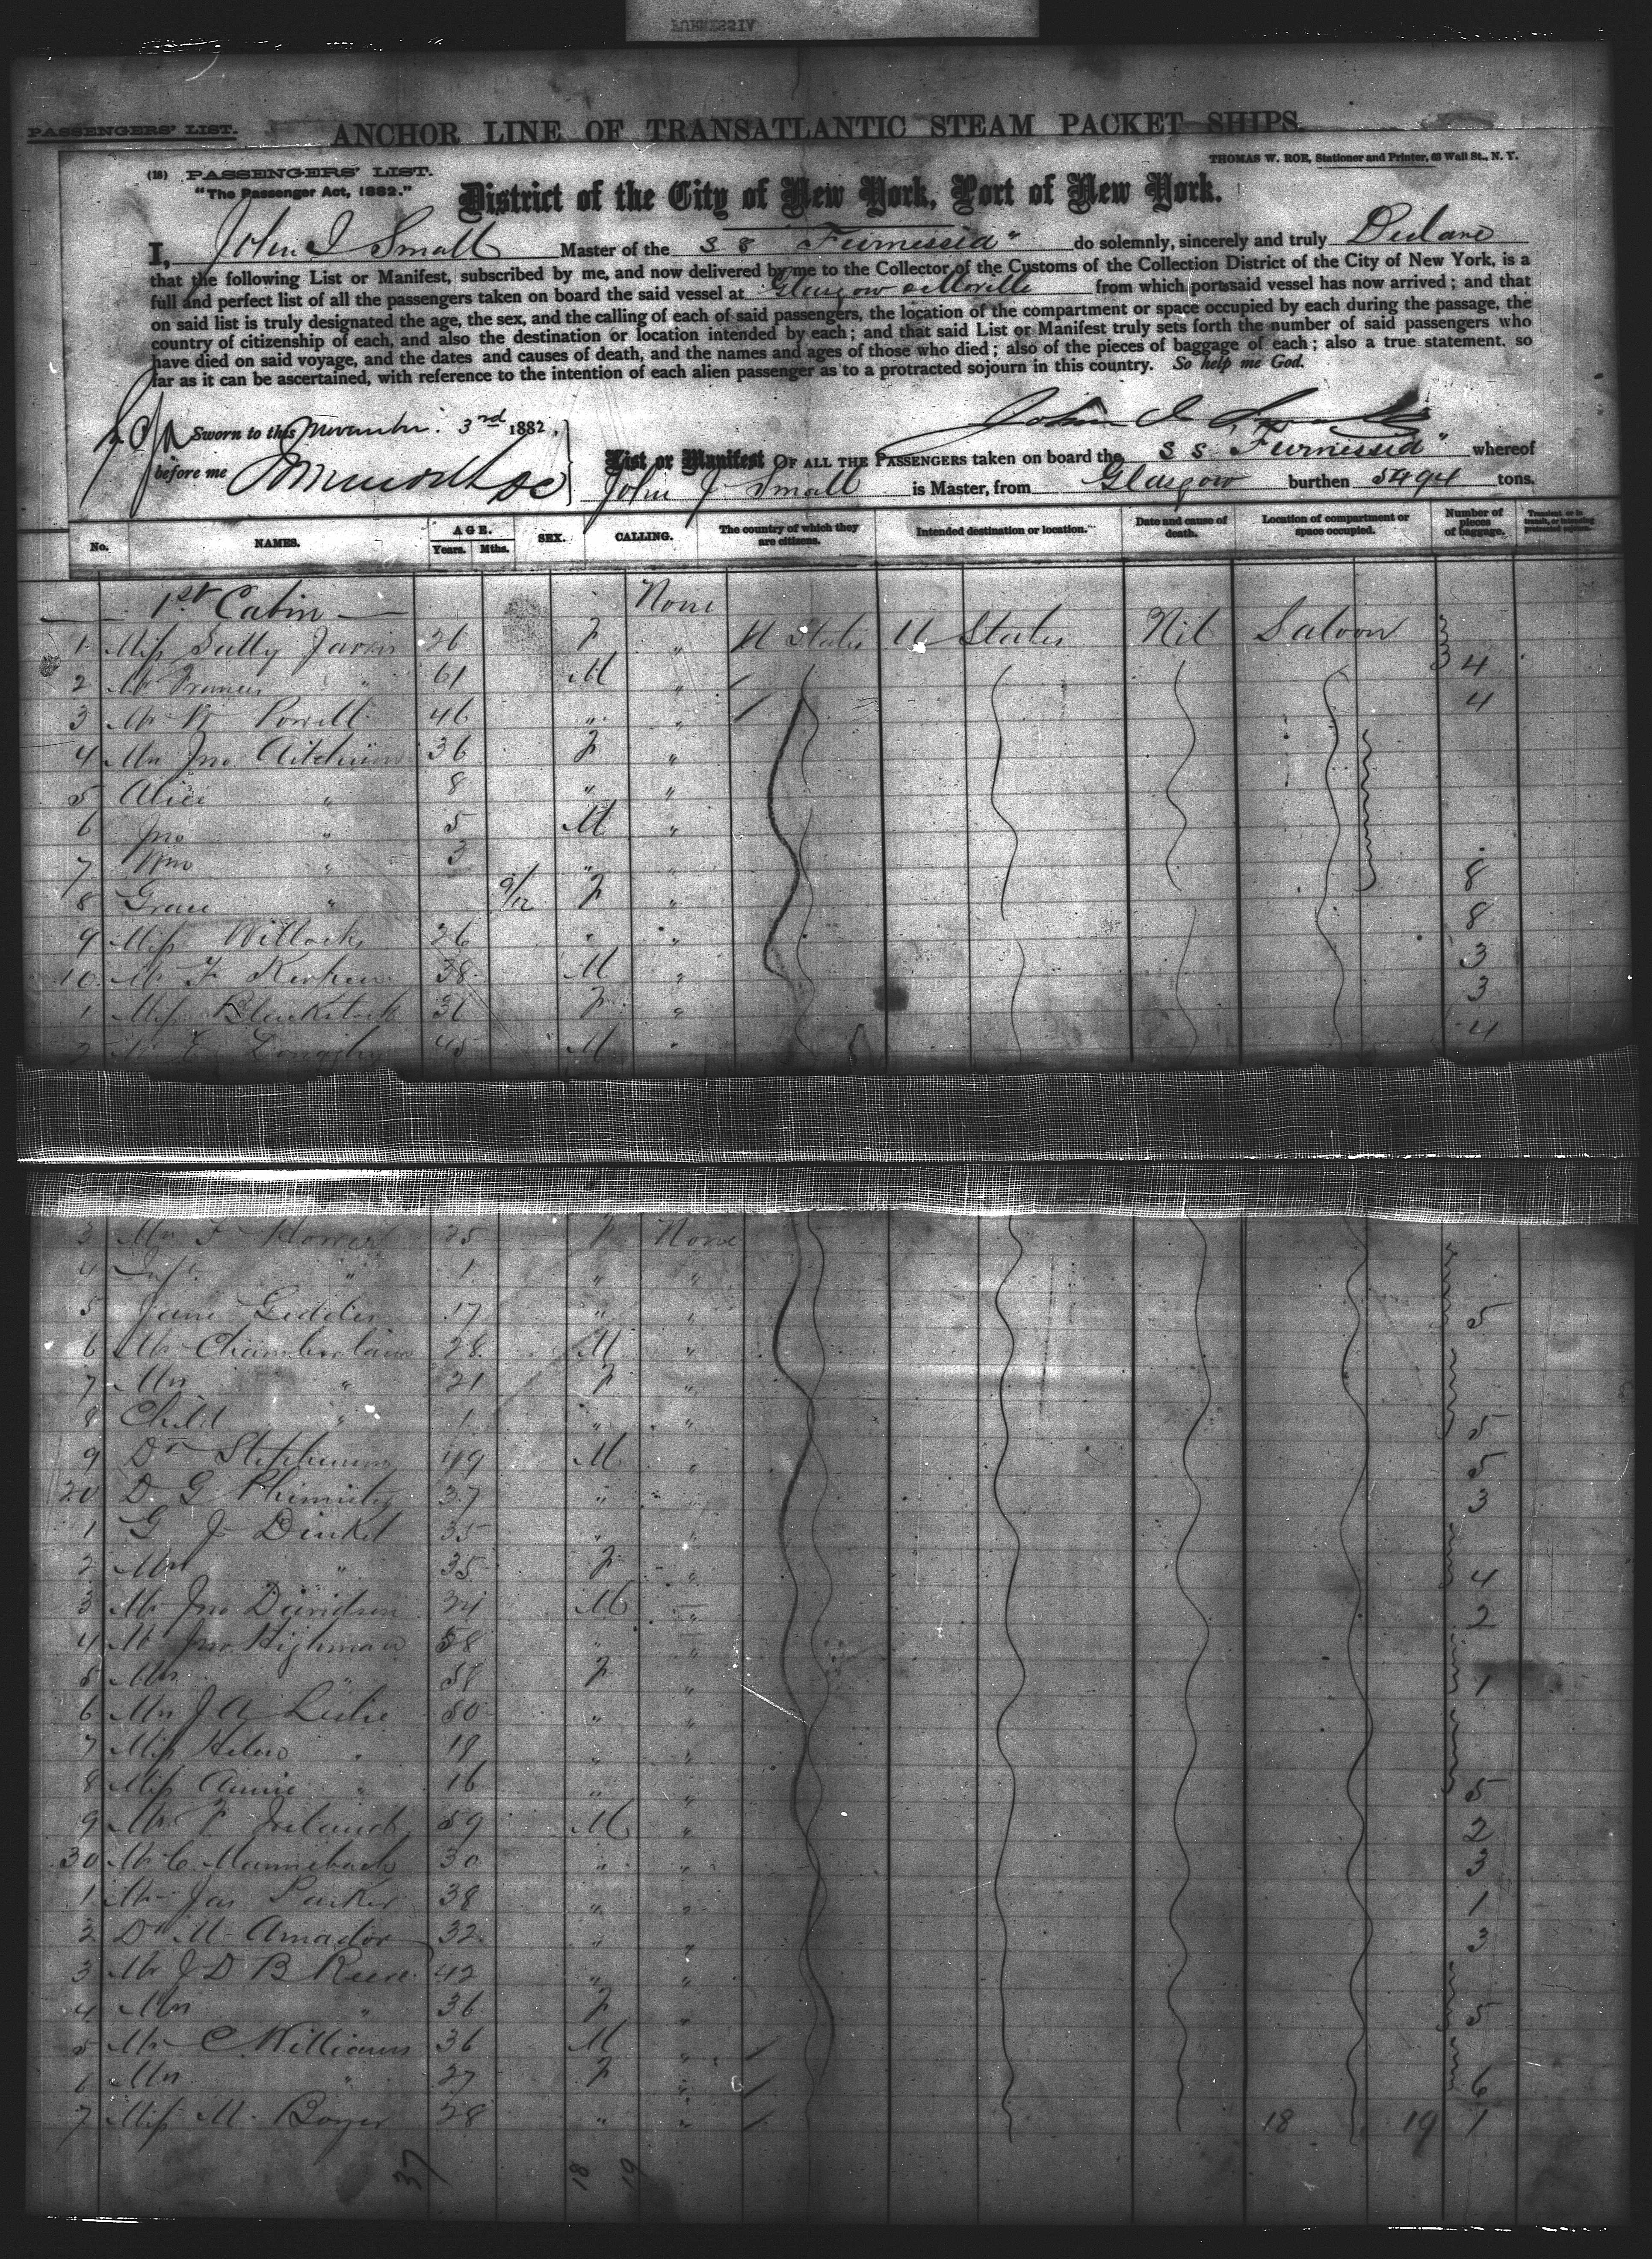 PASSENGERS' LIST.
ANCHOR LINE OF TRANSATLANTIC STEAM PACKET SHIPS.
THOMAS W. ROE, Stationer and Printer, 63 Wall St., N. Y.
(18) PASSENGERS' LIST.
"The Passenger Act, 1882."
District of the City of New York, Port of New York.
I, John J Small Master of the S S "Furnessia" do solemnly, sincerely and truly Declare
that the following List or Manifest, subscribed by me, and now delivered by me to the Collector of the Customs of the Collection District of the City of New York, is a
full and perfect list of all the passengers taken on board the said vessel at Glasgow & Moville from which port said vessel has now arrived; and that
on said list is truly designated the age, the sex, and the calling of each of said passengers, the location of the compartment or space occupied by each during the passage, the
country of citizenship of each, and also the destination or location intended by each; and that said List or Manifest truly sets forth the number of said passengers who
have died on said voyage, and the dates and causes of death, and the names and ages of those who died; also of the pieces of baggage of each; also a true statement, so
far as it can be ascertained, with reference to the intention of each alien passenger as to a protracted sojourn in this country. So help me God.
Sworn to this November 3rd 1882, John J Small
before me
List or Manifest OF ALL THE PASSENGERS taken on board the S S "Furnessia" whereof
John J Small is Master, from Glasgow burthen 5494 tons.
No. NAMES. AGE. Years. Mths. SEX. CALLING. The country of which they are citizens. Intended destination or location. Date and cause of death. Location of compartment or space occupied. Number of pieces of baggage.
1st Cabin None
1 Miss Sally Jarvis 26 F " U States U States Nil Saloon
2 Mr Francis " 61 M " 4
3 Mr Powell 46 " " 4
4 Mrs Jno Aitchison 36 F "
5 Alice " 8 " "
6 Jno " 5 M "
7 Wm " 3 " "
8 Grace " 9/12 F " 8
9 Miss Willocks 26 " " 8
10 Mr F 38 M " 3
1 Miss Blackstock 31 F " 3
2 Mr 45 M " 4
3 Mrs F Hower 25 F None
4 Inft " 1 " "
5 Jane Geddes 17 " " 5
6 Mr Chamberlain 28 M "
7 Mrs " 21 F "
8 Child " 1 " " 5
9 Dr Stephenson 49 M " 5
20 D G 37 " " 3
1 G J Dinkel 35 " "
2 Mrs " 35 F " 4
3 Mr Jno Davidson 24 M " 2
4 Mr Jno Highman 58 " "
5 Mrs " 58 F " 1
6 Mrs J A Leslie 50 " "
7 Miss Helen " 19 " "
8 Miss Annie " 16 " " 5
9 Mr Ireland 59 M " 2
30 Mr C Mannebach 30 " " 3
1 Mr Jas Parker 38 " " 1
2 Dr M Amador 32 " " 3
3 Mr J D B Reeve 42 " "
4 Mrs " 36 F " 5
5 Mr C Williams 36 M "
6 Mrs " 27 F " 6
7 Miss M Boyer 28 " " 18 19 1
37 18 19